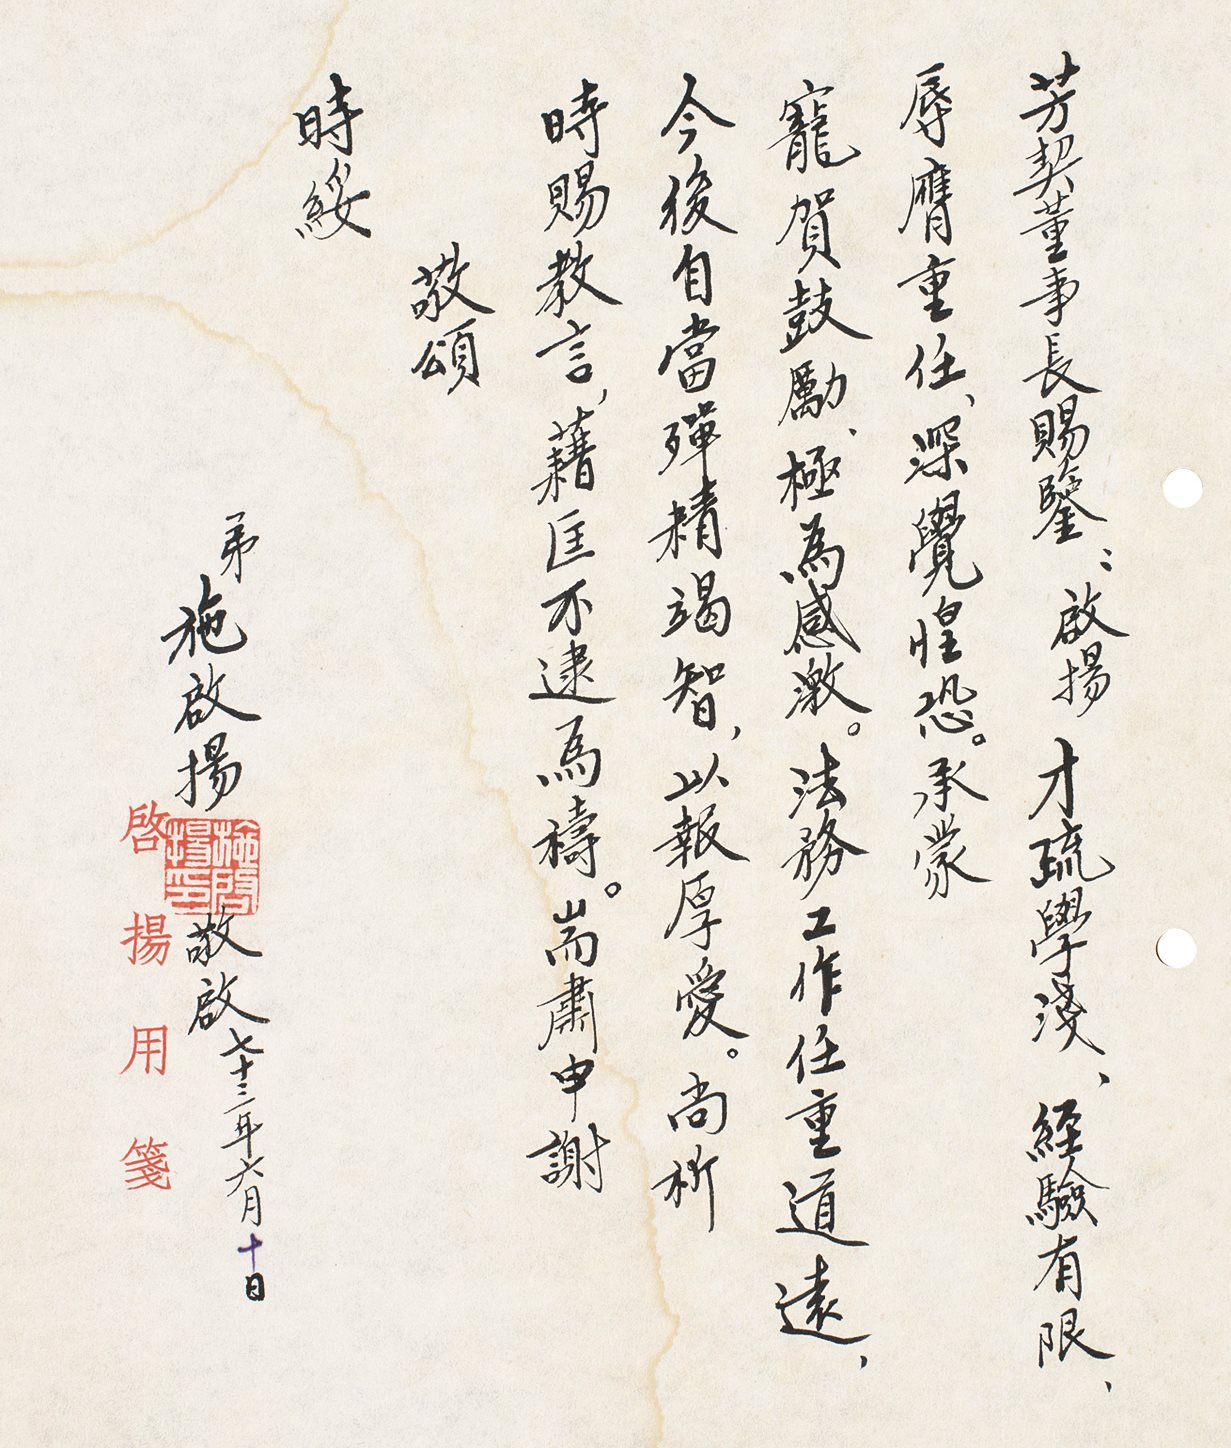 芳契董事長賜鑒：啟揚才疏學淺、經驗有限、
辱膺重任、深覺惶恐。承蒙
寵賀鼓勵、極為感激。法務工作任重道遠，
今後自當殫精竭智，以報厚愛。尚祈
時賜教言，藉匡不逮為禱。耑肅申謝
敬頌
時綏
弟施啟揚敬啟七十三年六月十日
施啟揚印
啓揚用箋